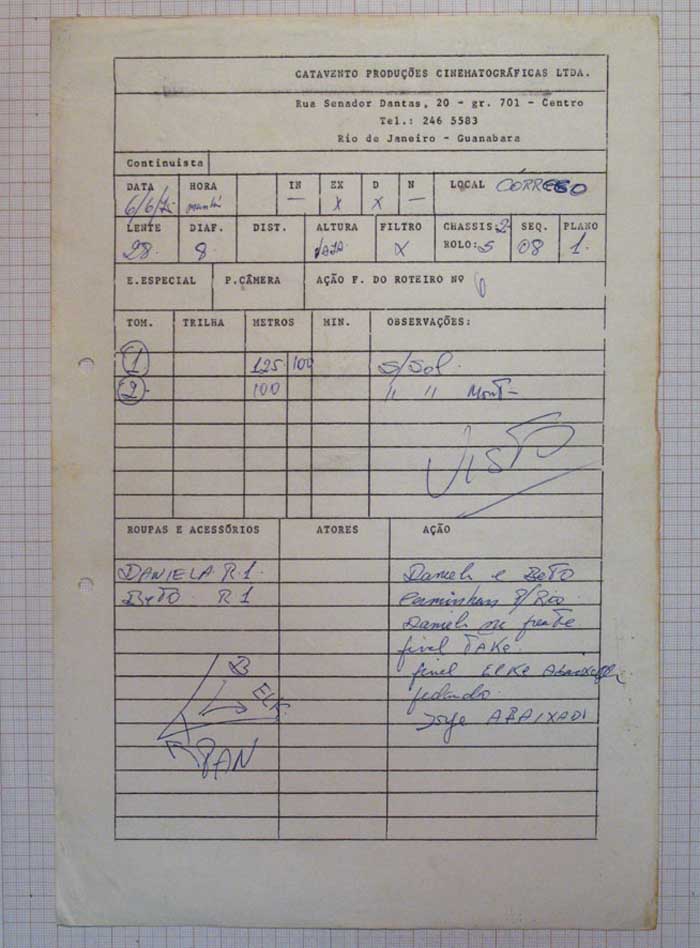 CATAVENTO PRODUÇÕES CINEMATOGRÁFICAS LTDA.
Rua Senador Dantas, 20 - gr. 701 - Centro
Tel.: 246 5583
Rio de Janeiro - Guanabara
Continuista
DATA HORA IN EX D N LOCAL CÓRREGO
6/6/ — X X —
LENTE DIAF. DIST. ALTURA FILTRO CHASSIS: 2 SEQ. PLANO
28. 8 X ROLO: 5 08 1.
E.ESPECIAL P.CÂMERA AÇÃO F. DO ROTEIRO Nº
TOM. TRILHA METROS MIN. OBSERVAÇÕES:
1 125 100 S/Sol.
2 100 " " Mont-
VISTO
ROUPAS E ACESSÓRIOS ATORES AÇÃO
DANIELA R.1. Daniela e BETO
BETO R1 Caminham P/Rio.
Daniela na frente
final TAKE.
B final ELKE
ELK.
Jorge ABAIXADO
PAN